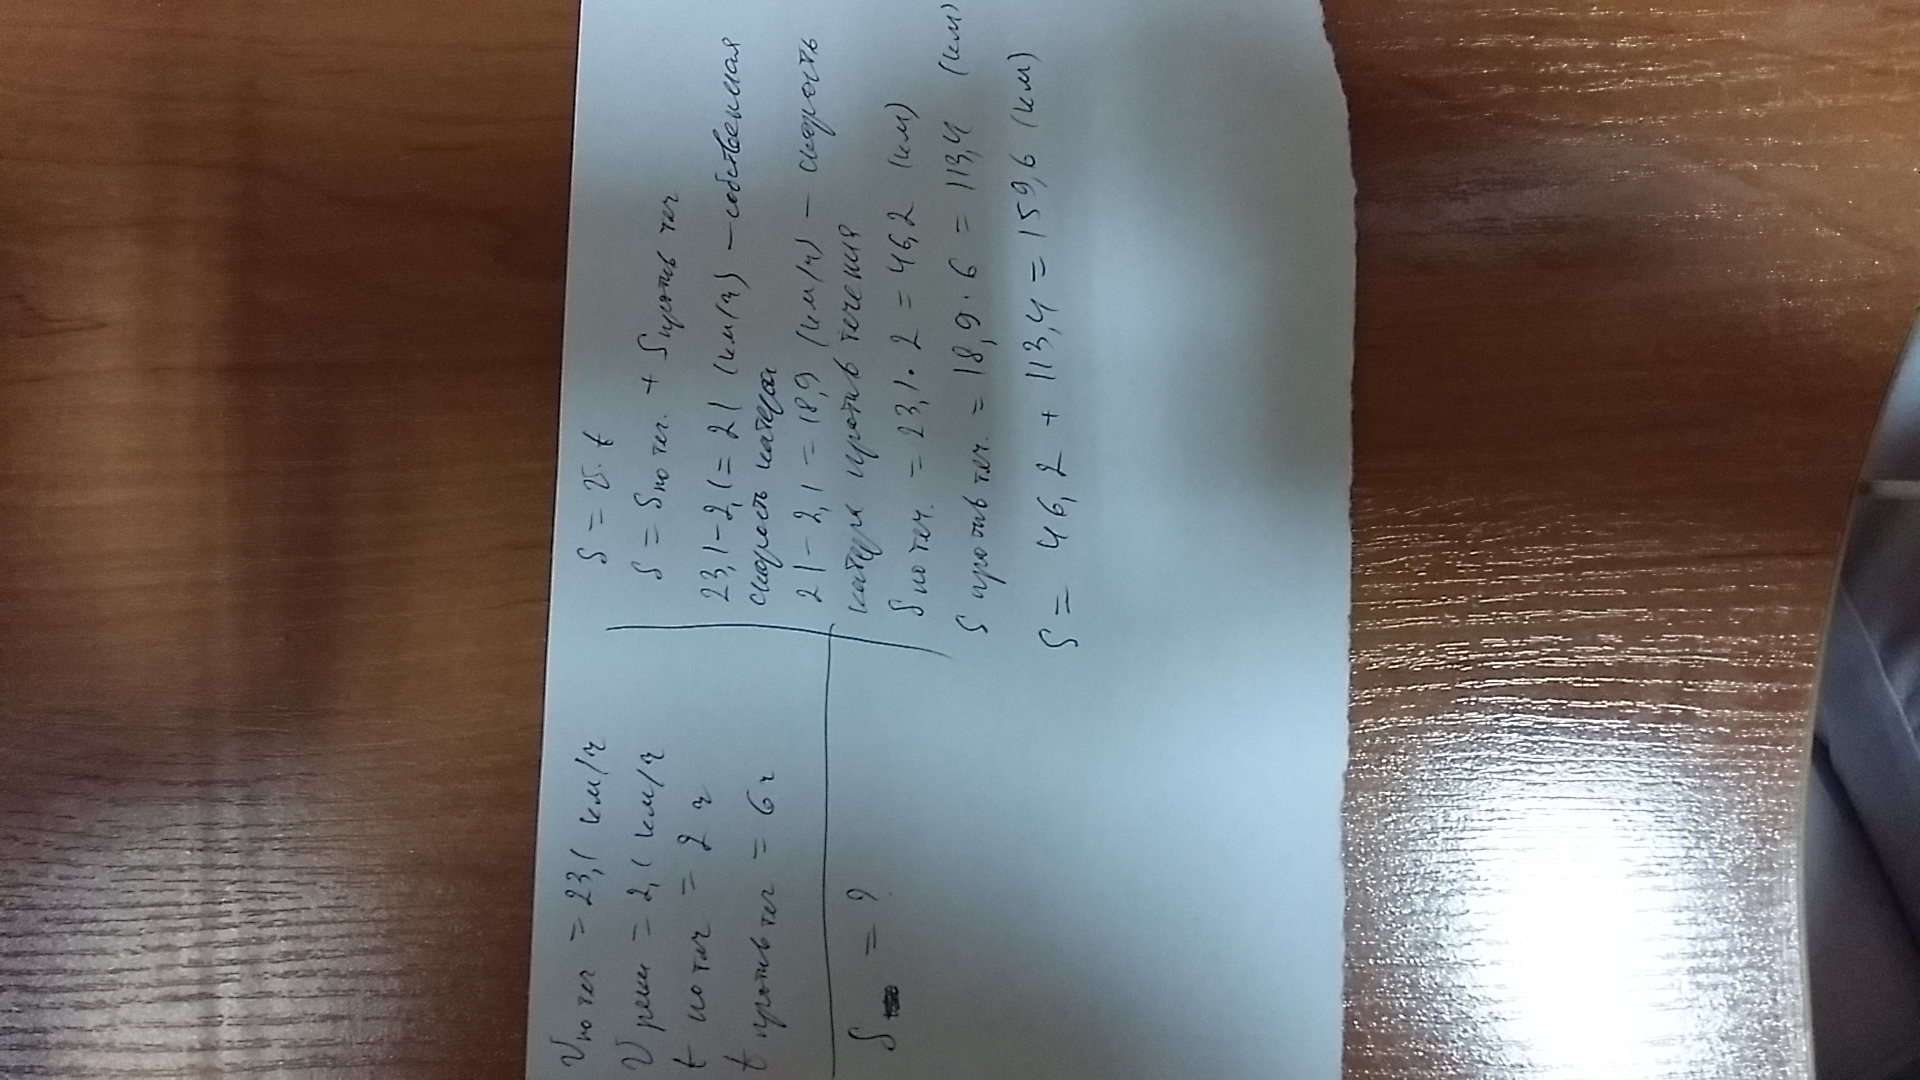 v по теч = 23,1 км/ч
v реки = 2,1 км/ч
t по теч = 2 ч
t против теч = 6 ч
S = ?
S = v · t
S = S по теч. + S против теч
23,1 - 2,1 = 21 (км/ч) - собственная
скорость катера
21 - 2,1 = 18,9 (км/ч) - скорость
катера против течения
S по теч. = 23,1 · 2 = 46,2 (км)
S против теч. = 18,9 · 6 = 113,4 (км)
S = 46,2 + 113,4 = 159,6 (км)